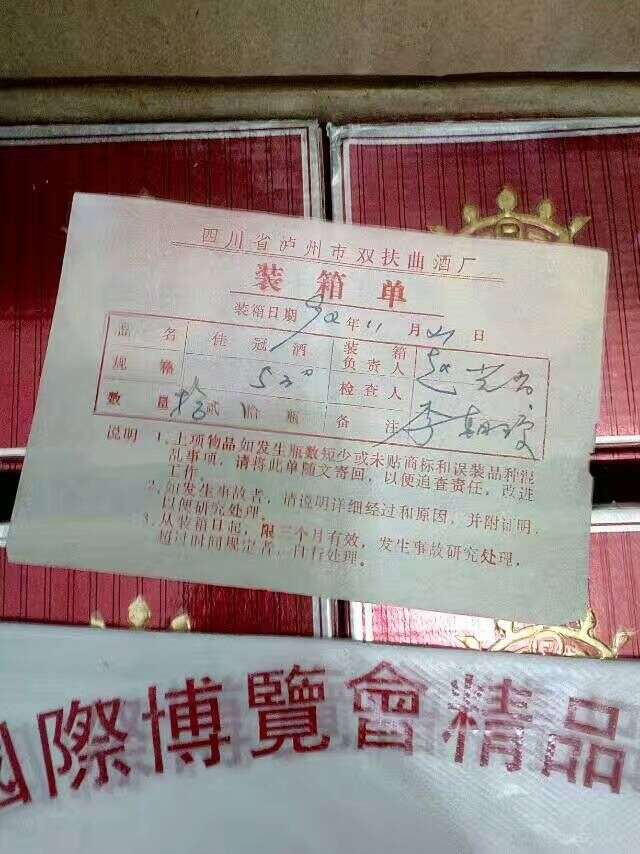 四川省泸州市双扶曲酒厂
装箱单
装箱日期 92年11月21日
品名 佳冠酒 装箱负责人
规格 52° 检查人
数量 拾贰 拾瓶 备注 李
说明 1、上项物品如发生瓶数短少或未贴商标和误装品种混
乱事项，请将此单随文寄回，以便追查责任，改进
工作。
2、如发生事故者，请说明详细经过和原因，并附证明，
以便研究处理。
3、从装箱日起，限三个月有效，发生事故研究处理，
超过时间规定者，自行处理。
國際博覽會精品